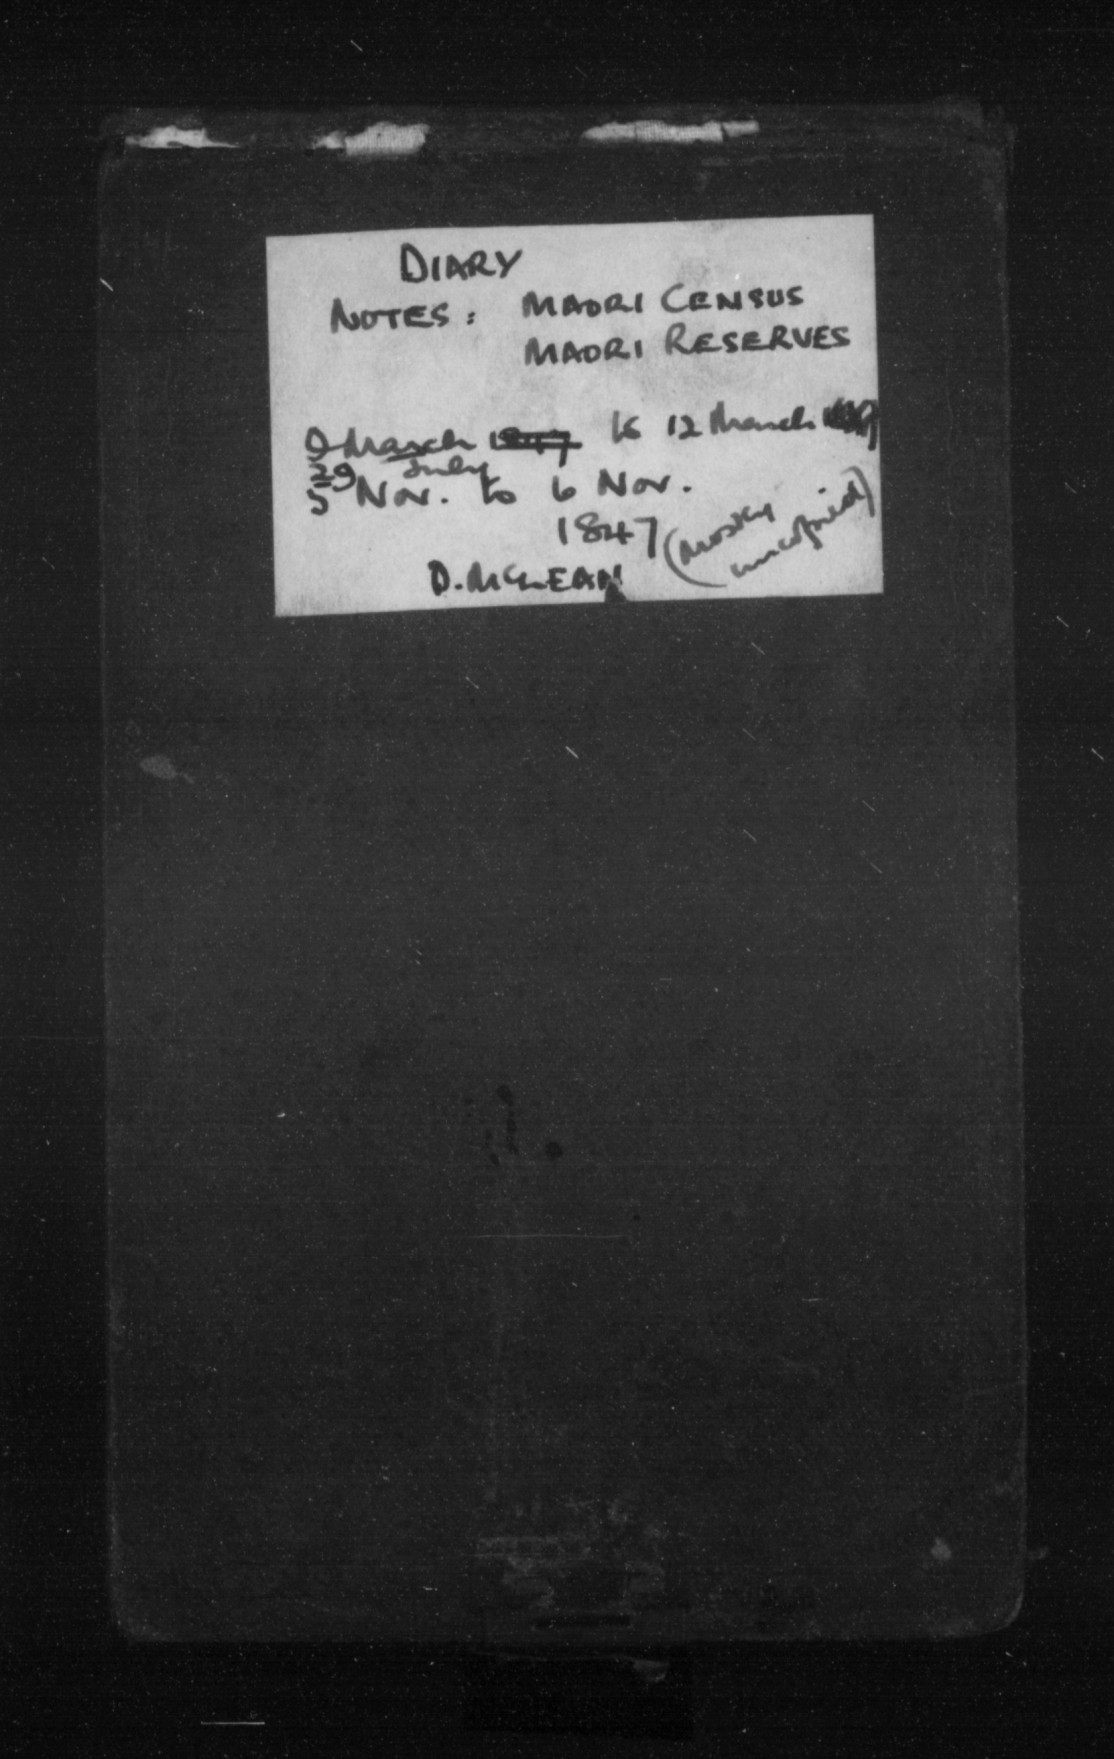 DIARY
NOTES: MAORI CENSUS
MAORI RESERVES
9 March 1847 to 12 March
29 July
5 Nov. to 6 Nov.
1847 (mostly uncopied)
D. McLEAN